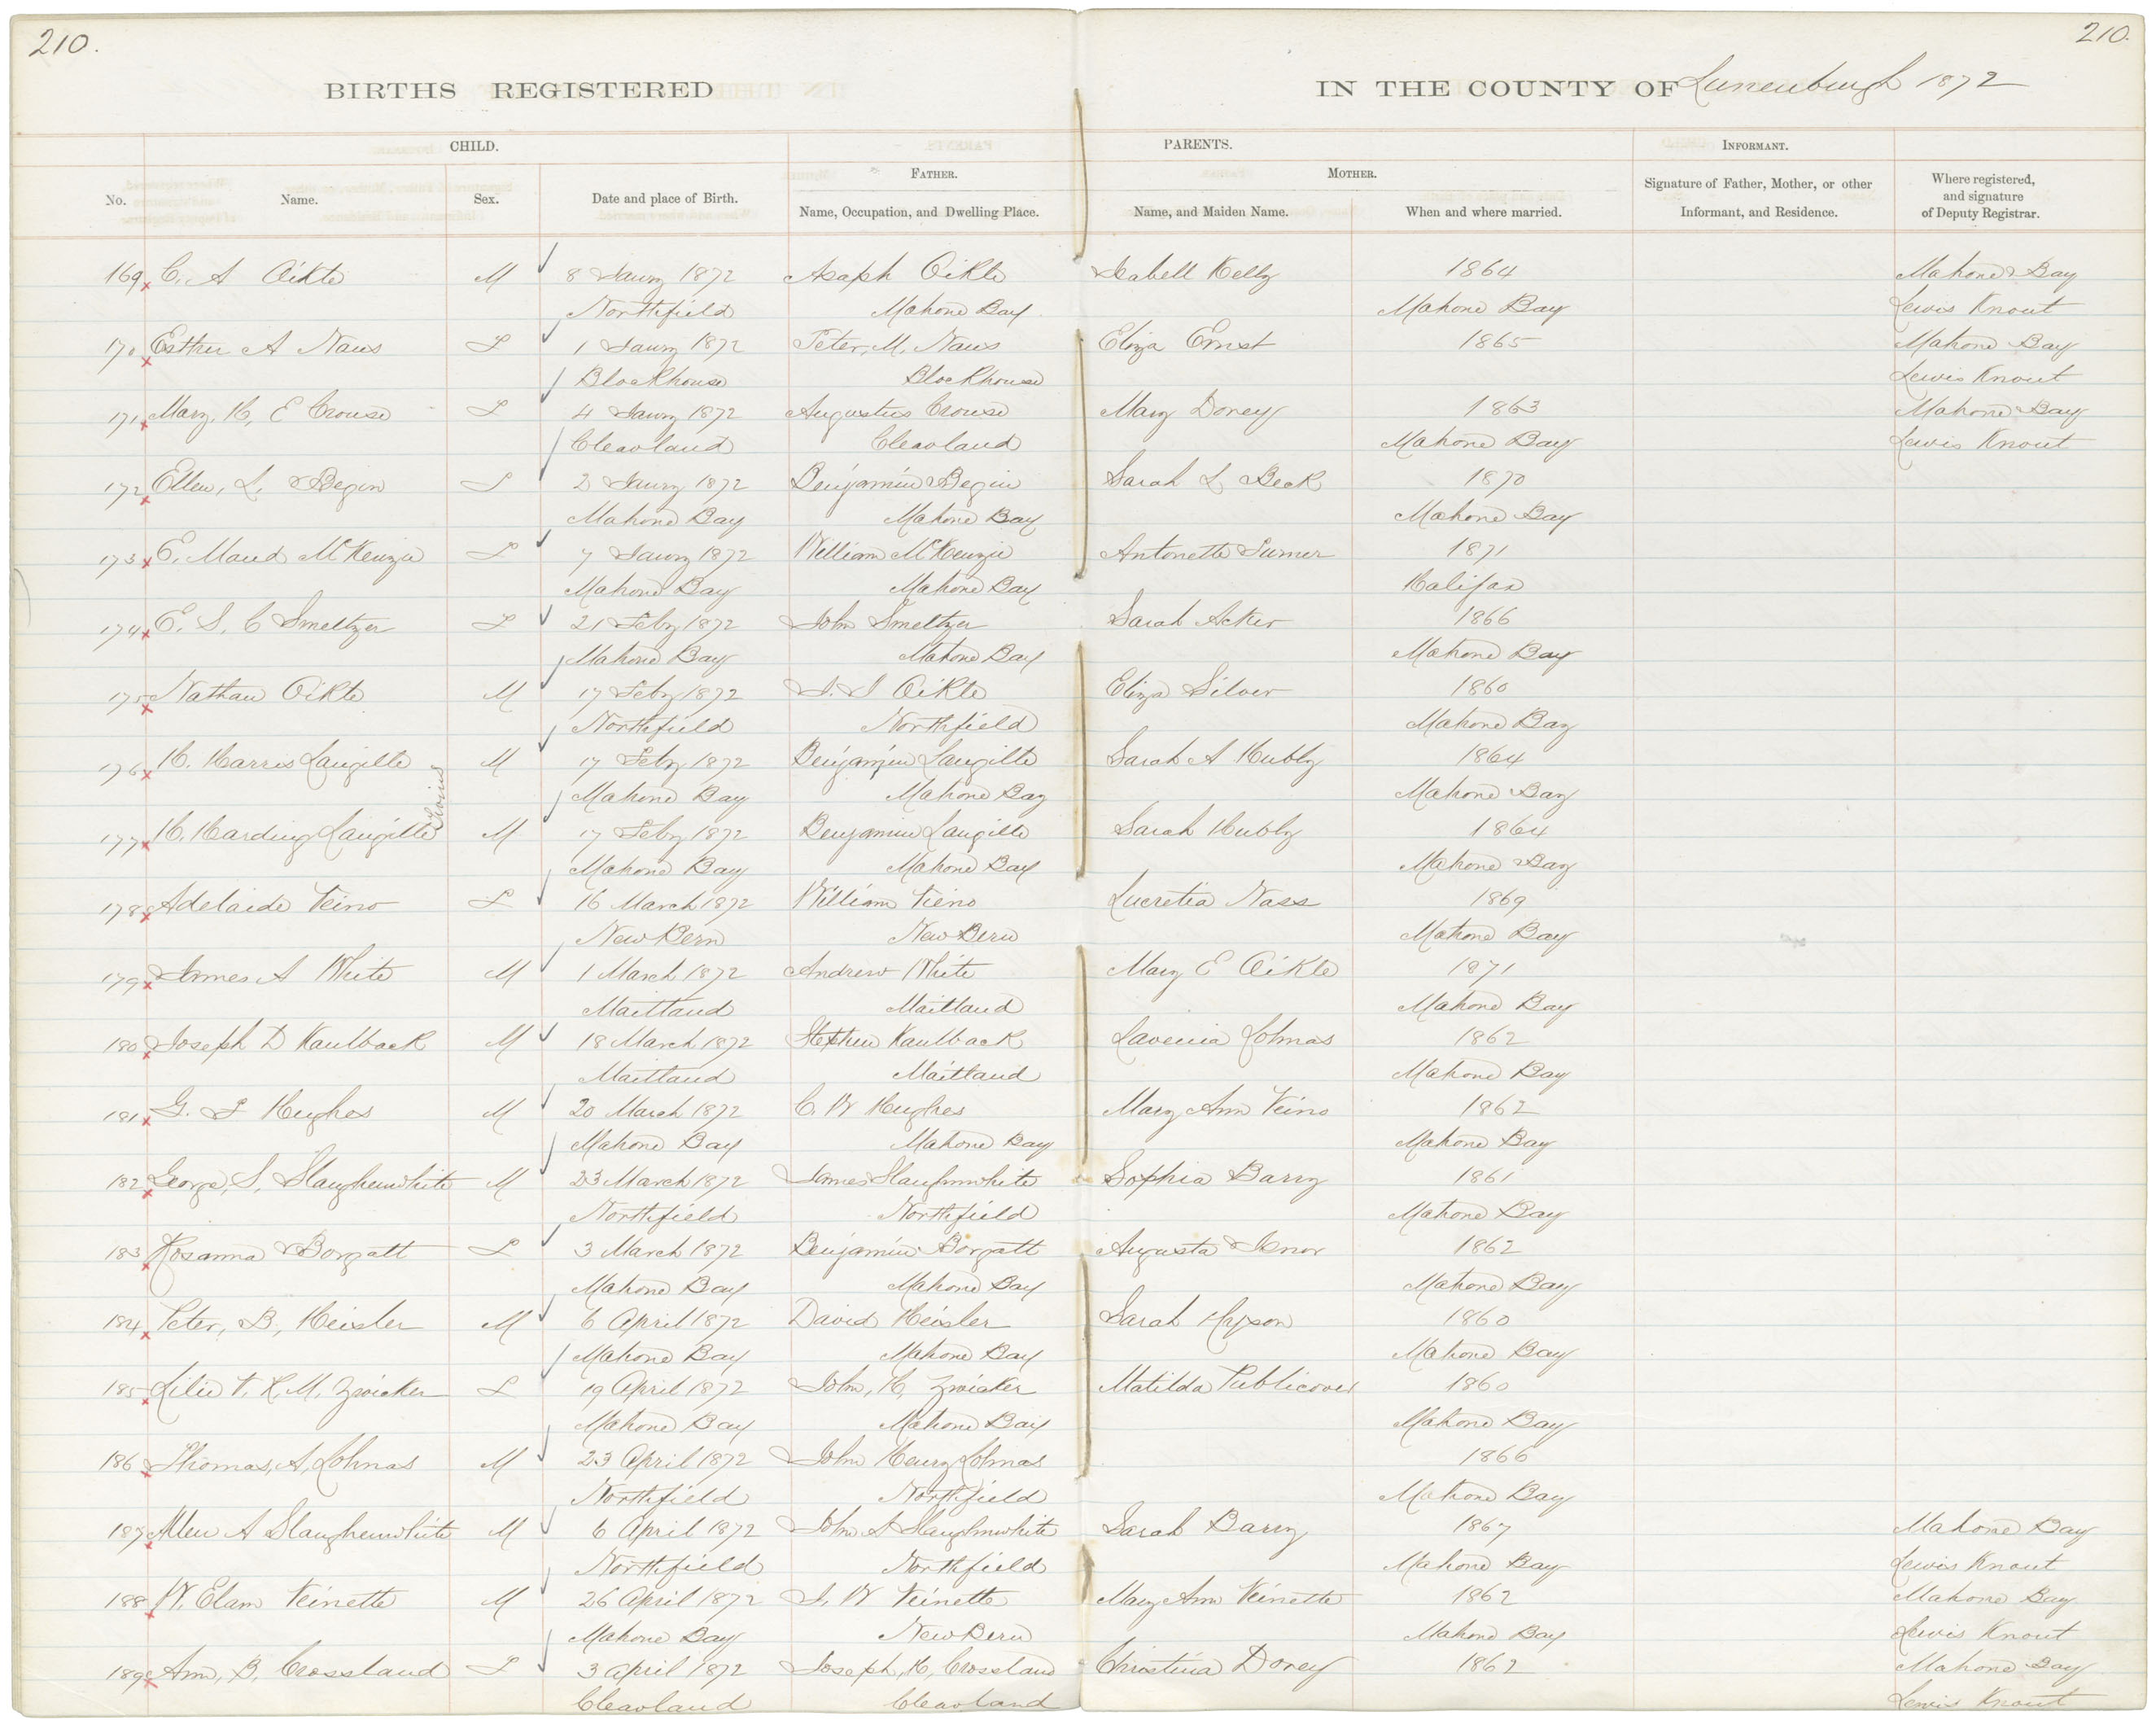 210. 210.
BIRTHS REGISTERED IN THE COUNTY OF Lunenburgh 1872
CHILD. PARENTS. INFORMANT.
FATHER. MOTHER.
No. Name. Sex. Date and place of Birth. Name, Occupation, and Dwelling Place. Name, and Maiden Name. When and where married. Signature of Father, Mother, or other Informant, and Residence. Where registered, and signature of Deputy Registrar.
169 C. A Oikle M 8 Jany 1872 Asaph Oikle Isabell Kelly 1864 Mahone Bay
Northfield Mahone Bay Mahone Bay Lewis Knout
170 Esther A Naus F 1 Jany 1872 Peter, M. Naus Eliza Ernst 1865 Mahone Bay
Blockhouse Blockhouse Lewis Knout
171 Mary, H, E Crouse F 4 Jany 1872 Augustus Crouse Mary Dorey 1863 Mahone Bay
Cleavland Cleavland Mahone Bay Lewis Knout
172 Ellen, L. Begin F 2 Jany 1872 Benjamin Begin Sarah L Beck 1870
Mahone Bay Mahone Bay Mahone Bay
173 E. Maud McKenzie F 7 Jany 1872 William McKenzie Antonette 1871
Mahone Bay Mahone Bay Halifax
174 E. S. C Smeltzer F 21 Feby 1872 John Smeltzer Sarah Acker 1866
Mahone Bay Mahone Bay Mahone Bay
175 Nathan Oikle M 17 Feby 1872 Oikle Eliza Silver 1860
Northfield Northfield Mahone Bay
176 H. Harris Langille Twins M 17 Feby 1872 Benjamin Langille Sarah A Hubly 1864
Mahone Bay Mahone Bay Mahone Bay
177 H. Harding Langille M 17 Feby 1872 Benjamin Langille Sarah Hubly 1864
Mahone Bay Mahone Bay Mahone Bay
178 Adelaide Veino F 16 March 1872 William Vieno Lucretia Nass 1869
New Bern New Bern Mahone Bay
179 James A White M 1 March 1872 Andrew White Mary E Oikle 1871
Maitland Maitland Mahone Bay
180 Joseph D Kaulback M 18 March 1872 Stephen Kaulback Lavenia Lohnas 1862
Maitland Maitland Mahone Bay
181 G. F Hughes M 20 March 1872 C. W Hughes Mary Ann Veino 1862
Mahone Bay Mahone Bay Mahone Bay
182 George, S, Slaughenwhite M 23 March 1872 James Slaughnwhite Sophia Barry 1861
Northfield Northfield Mahone Bay
183 Rosanna Borgatt F 3 March 1872 Benjamin Borgatt Augusta 1862
Mahone Bay Mahone Bay Mahone Bay
184 Peter, B, Heisler M 6 April 1872 David Heisler Sarah Hyson 1860
Mahone Bay Mahone Bay Mahone Bay
185 Lilie V. R. M. Zwicker F 19 April 1872 John, H, Zwicker Matilda Publicover 1860
Mahone Bay Mahone Bay Mahone Bay
186 Thomas, A, Lohnas M 23 April 1872 John Henry Lohnas 1866
Northfield Northfield Mahone Bay
187 Allen A Slaughenwhite M 6 April 1872 John S Slaughnwhite Sarah Barry 1867 Mahone Bay
Northfield Northfield Mahone Bay Lewis Knout
188 W. Elam Veinette M 26 April 1872 J. W Veinette Mary Ann Veinette 1862 Mahone Bay
Mahone Bay New Bern Mahone Bay Lewis Knout
189 Ann, B. Crossland F 3 April 1872 Joseph, H, Crossland Christina Dorey 1862 Mahone Bay
Cleavland Cleavland Lewis Knout